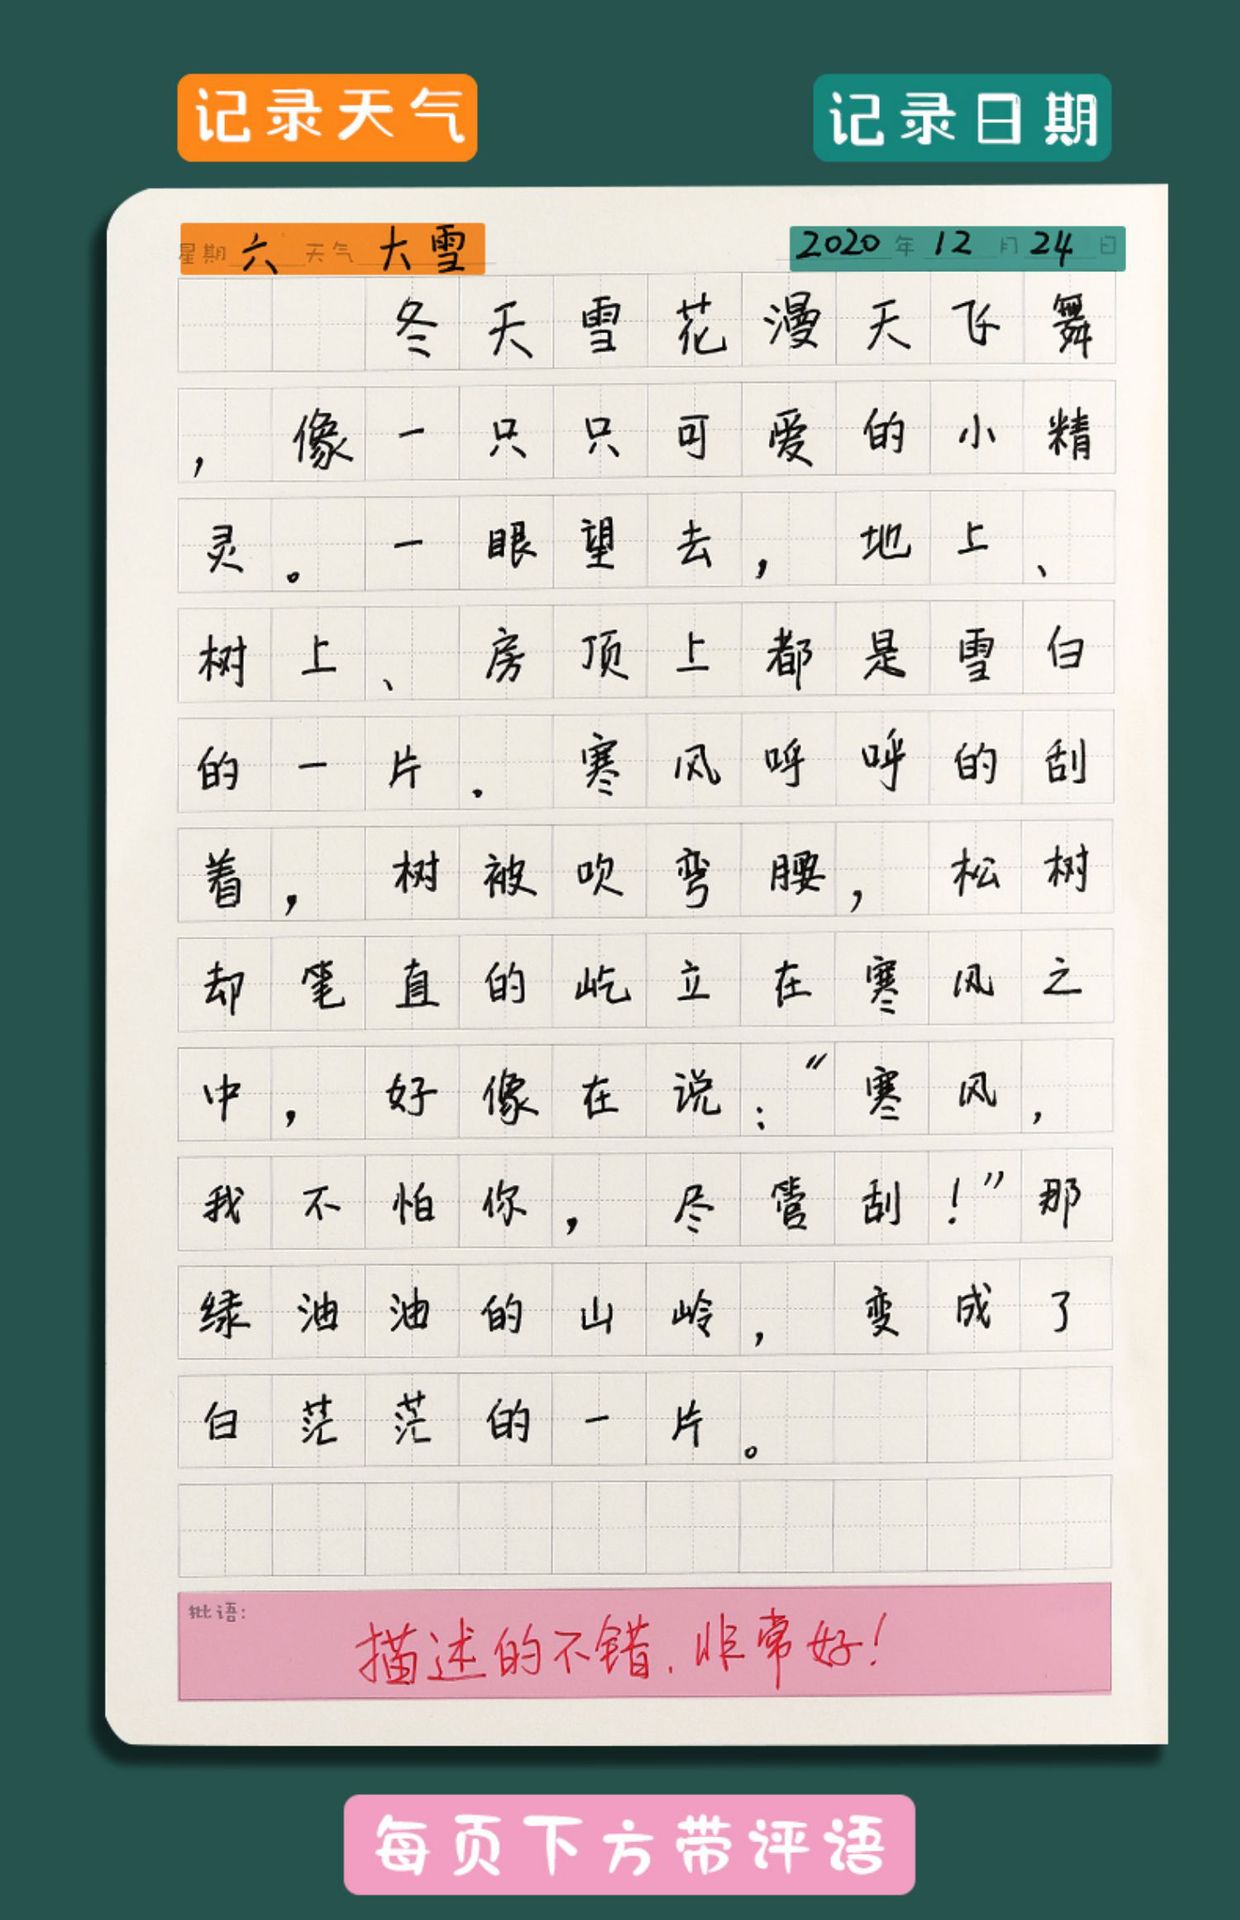 记录天气 记录日期
星期 六 天气 大雪 2020 年 12 月 24 日
冬天雪花漫天飞舞
，像一只只可爱的小精
灵。一眼望去，地上、
树上、房顶上都是雪白
的一片．寒风呼呼的刮
着，树被吹弯腰，松树
却笔直的屹立在寒风之
中，好像在说：“寒风，
我不怕你，尽管刮！”那
绿油油的山岭，变成了
白茫茫的一片。
批语：
描述的不错．非常好！
每页下方带评语